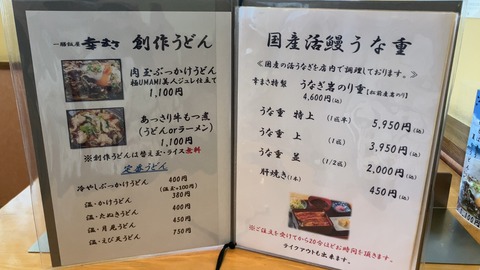 一膳飯屋 幸まさ 創作うどん
肉玉ぶっかけうどん
極UMAMI美人ジュレ仕立て
1,100円
あっさり牛もつ煮
(うどんorラーメン)
1,100円
※創作うどんは替え玉・ライス無料
定番うどん
冷やしぶっかけうどん 400円
(温玉+100円)
温・かけうどん 380円
温・たぬきうどん 400円
温・月見うどん 450円
温・えび天うどん 750円
国産活鰻うな重
≪国産の活うなぎを店内で調理しております。≫
幸まさ特製 うなぎ岩のり重【松前産岩のり】
4,600円(込)
うな重 特上 (1匹半) 5,950円(込)
うな重 上 (1匹) 3,950円(込)
うな重 並 (1/2匹) 2,000円(込)
肝焼き(1本) 450円(込)
※ご注文を受けてから20分ほどお時間を頂きます。
テイクアウトも出来ます。